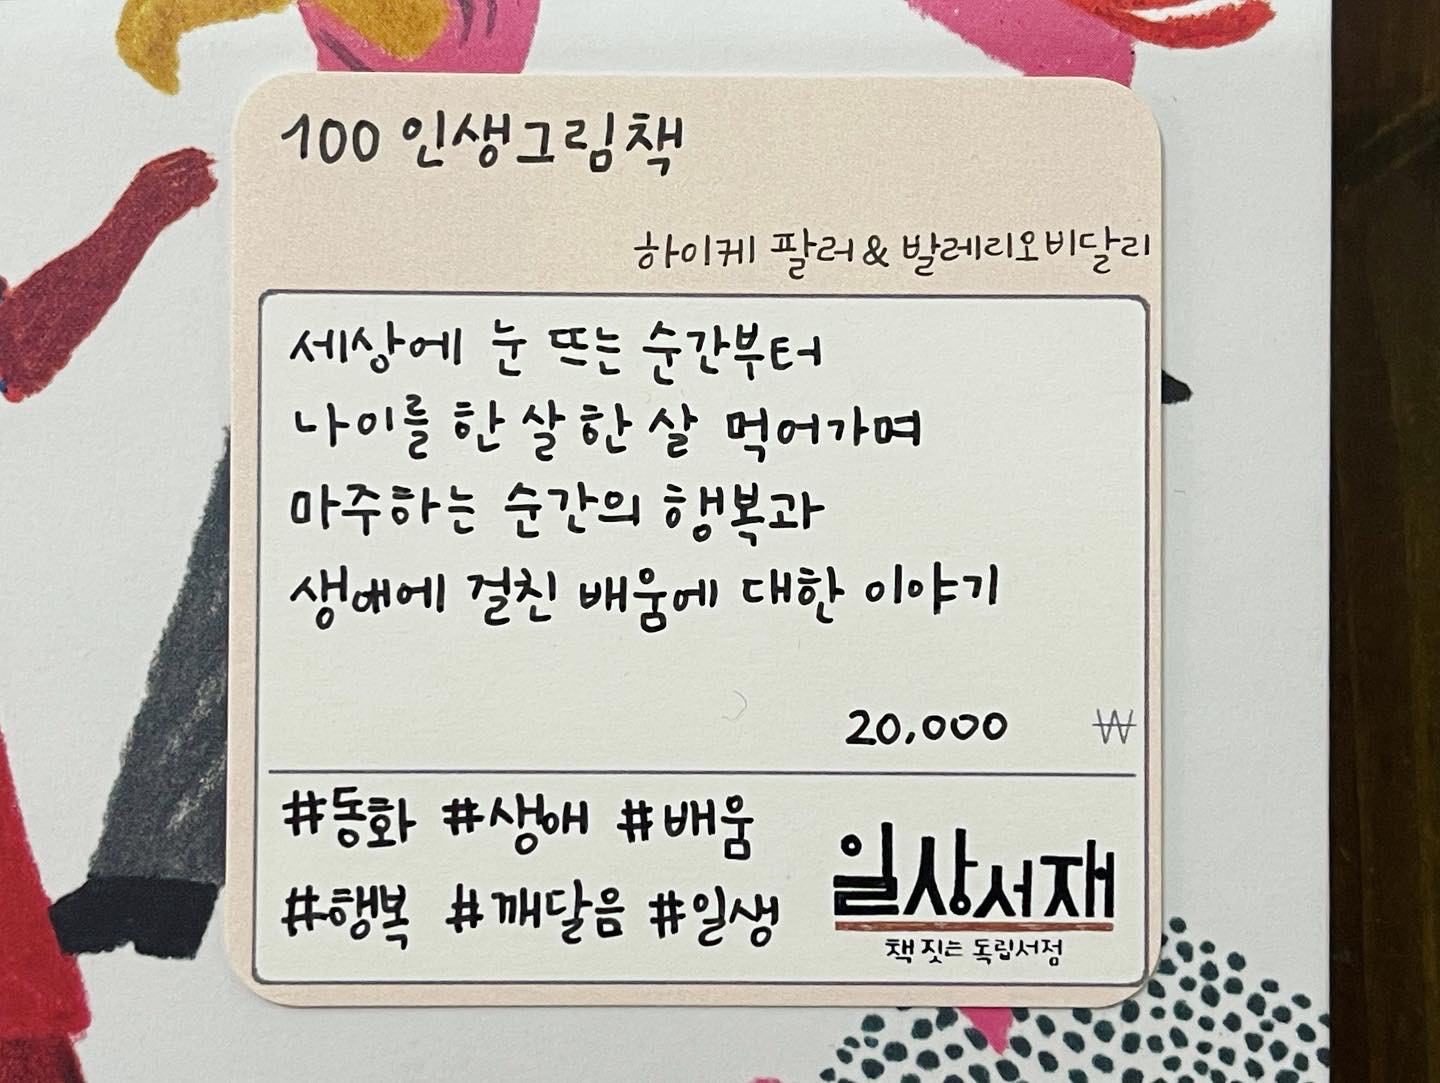 100 인생그림책
하이케 팔러 & 발레리오 비달리
세상에 눈 뜨는 순간부터
나이를 한 살 한 살 먹어가며
마주하는 순간의 행복과
생애에 걸친 배움에 대한 이야기
20,000 ₩
#동화 #생애 #배움
#행복 #깨달음 #일생
일상서재
책 짓는 독립서점